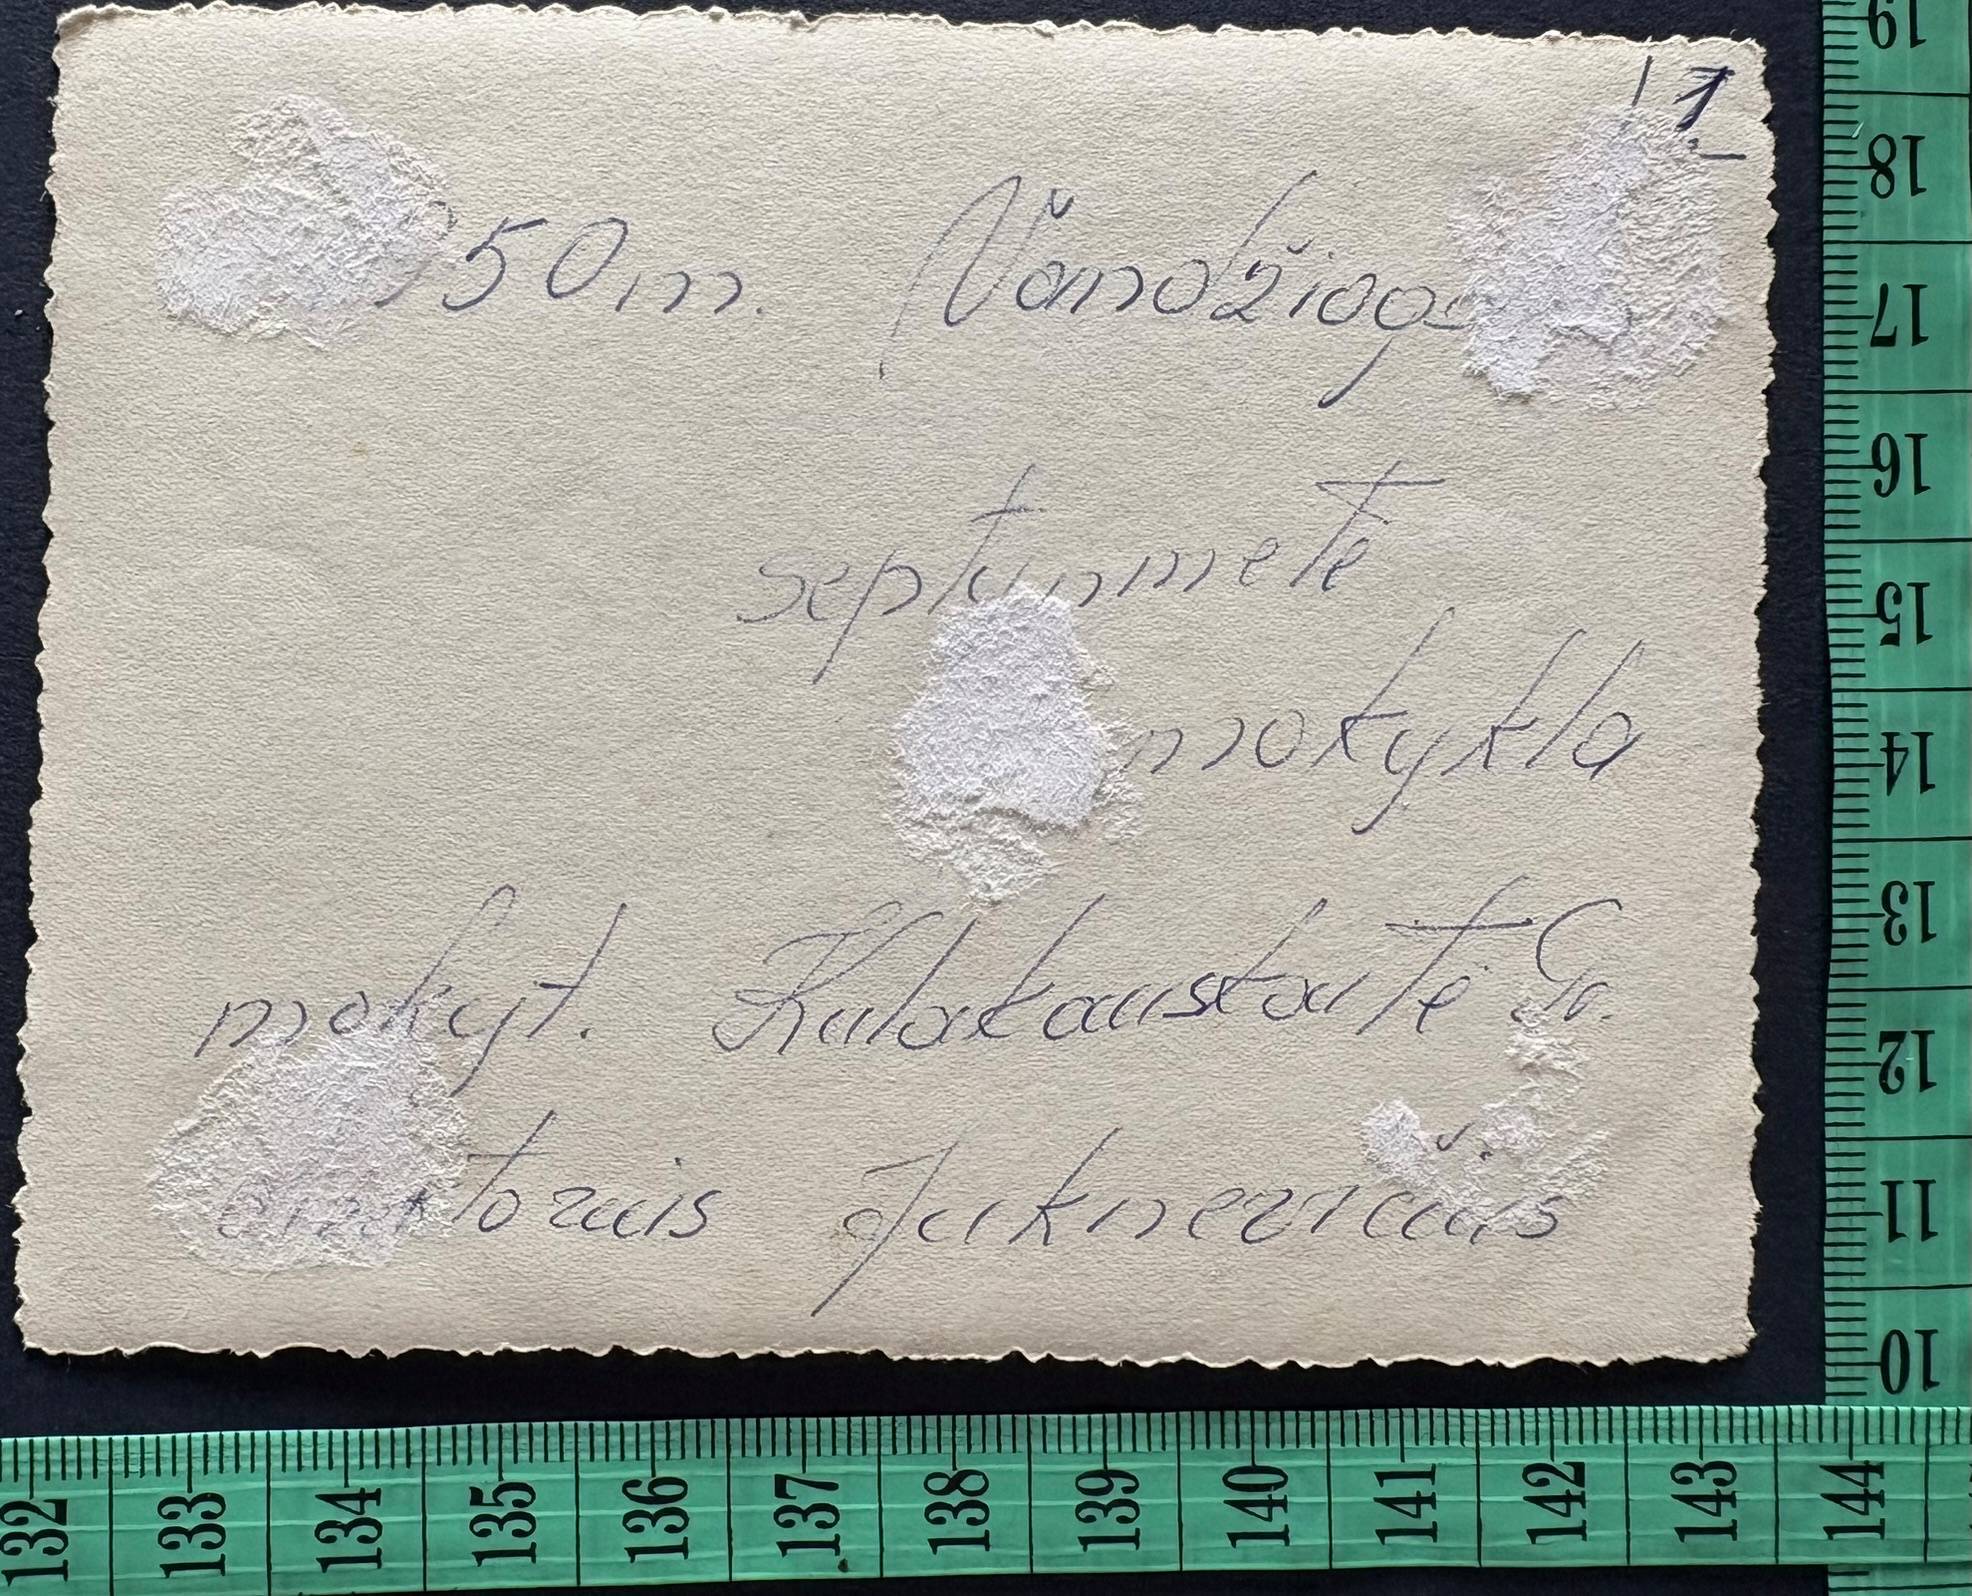 1.
950 m. Vandžiogo
septynmetė
mokykla
mokyt. Kulokauskaitė Gr.
Juknevičius
19
18
17
16
15
14
13
12
11
10
132 133 134 135 136 137 138 139 140 141 142 143 144